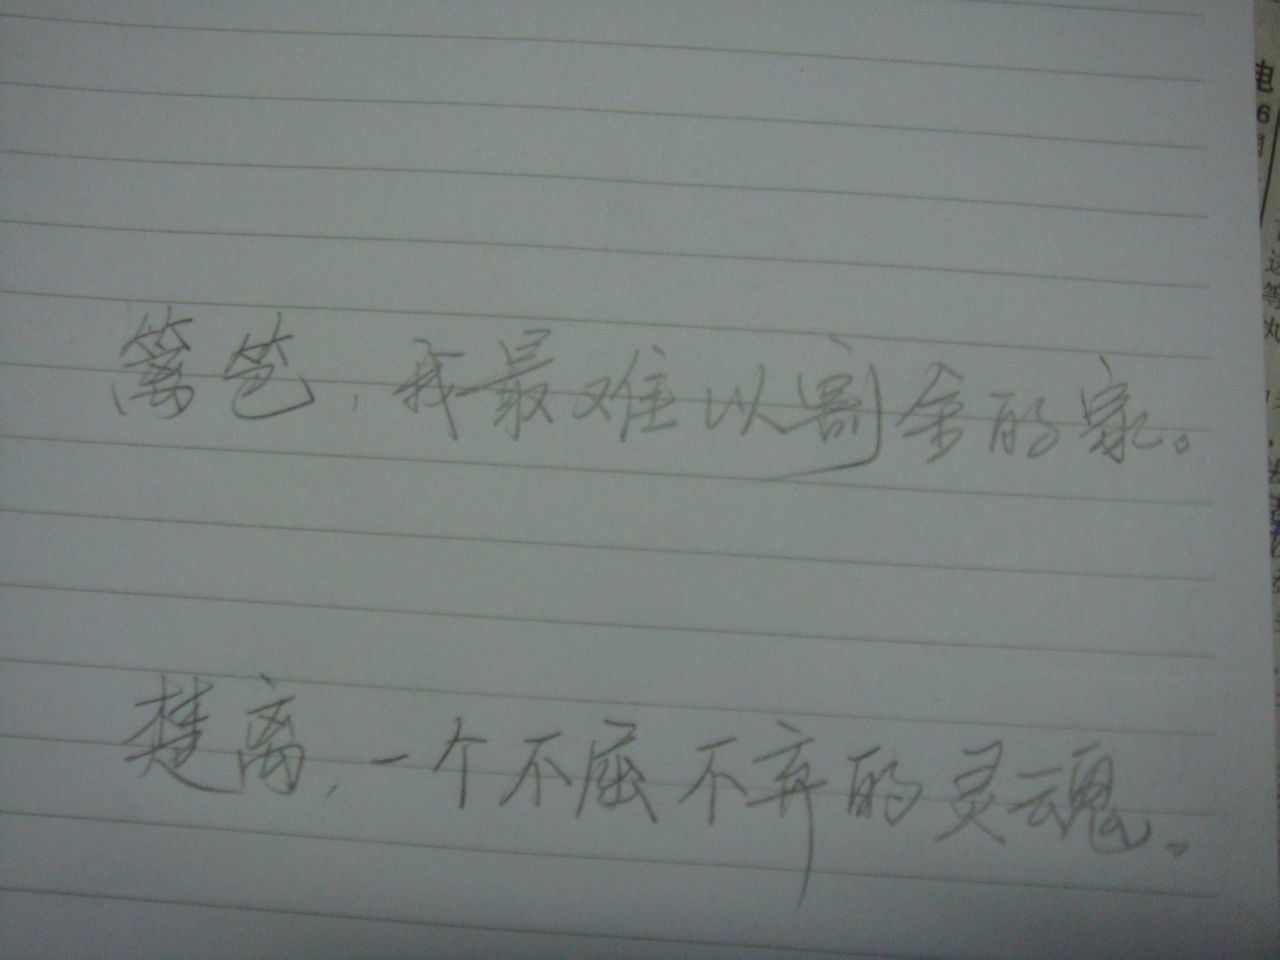 篱笆，我最难以割舍的家。
楚离，一个不屈不弃的灵魂。
电
6
等